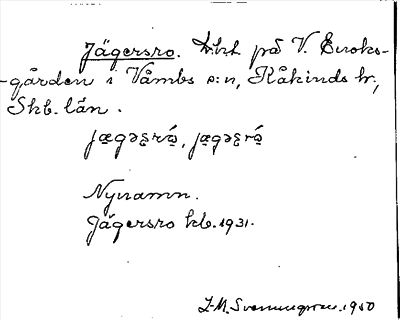 Jägersro. på V. Eroks-
-gården i Våmbs s:n, Kåkinds hr,
Skb. län.
jægəʂrọ́, jægəʂrọ́
Nynamn.
Jägersro kb. 1931.
I-M. Svenningsson. 1950